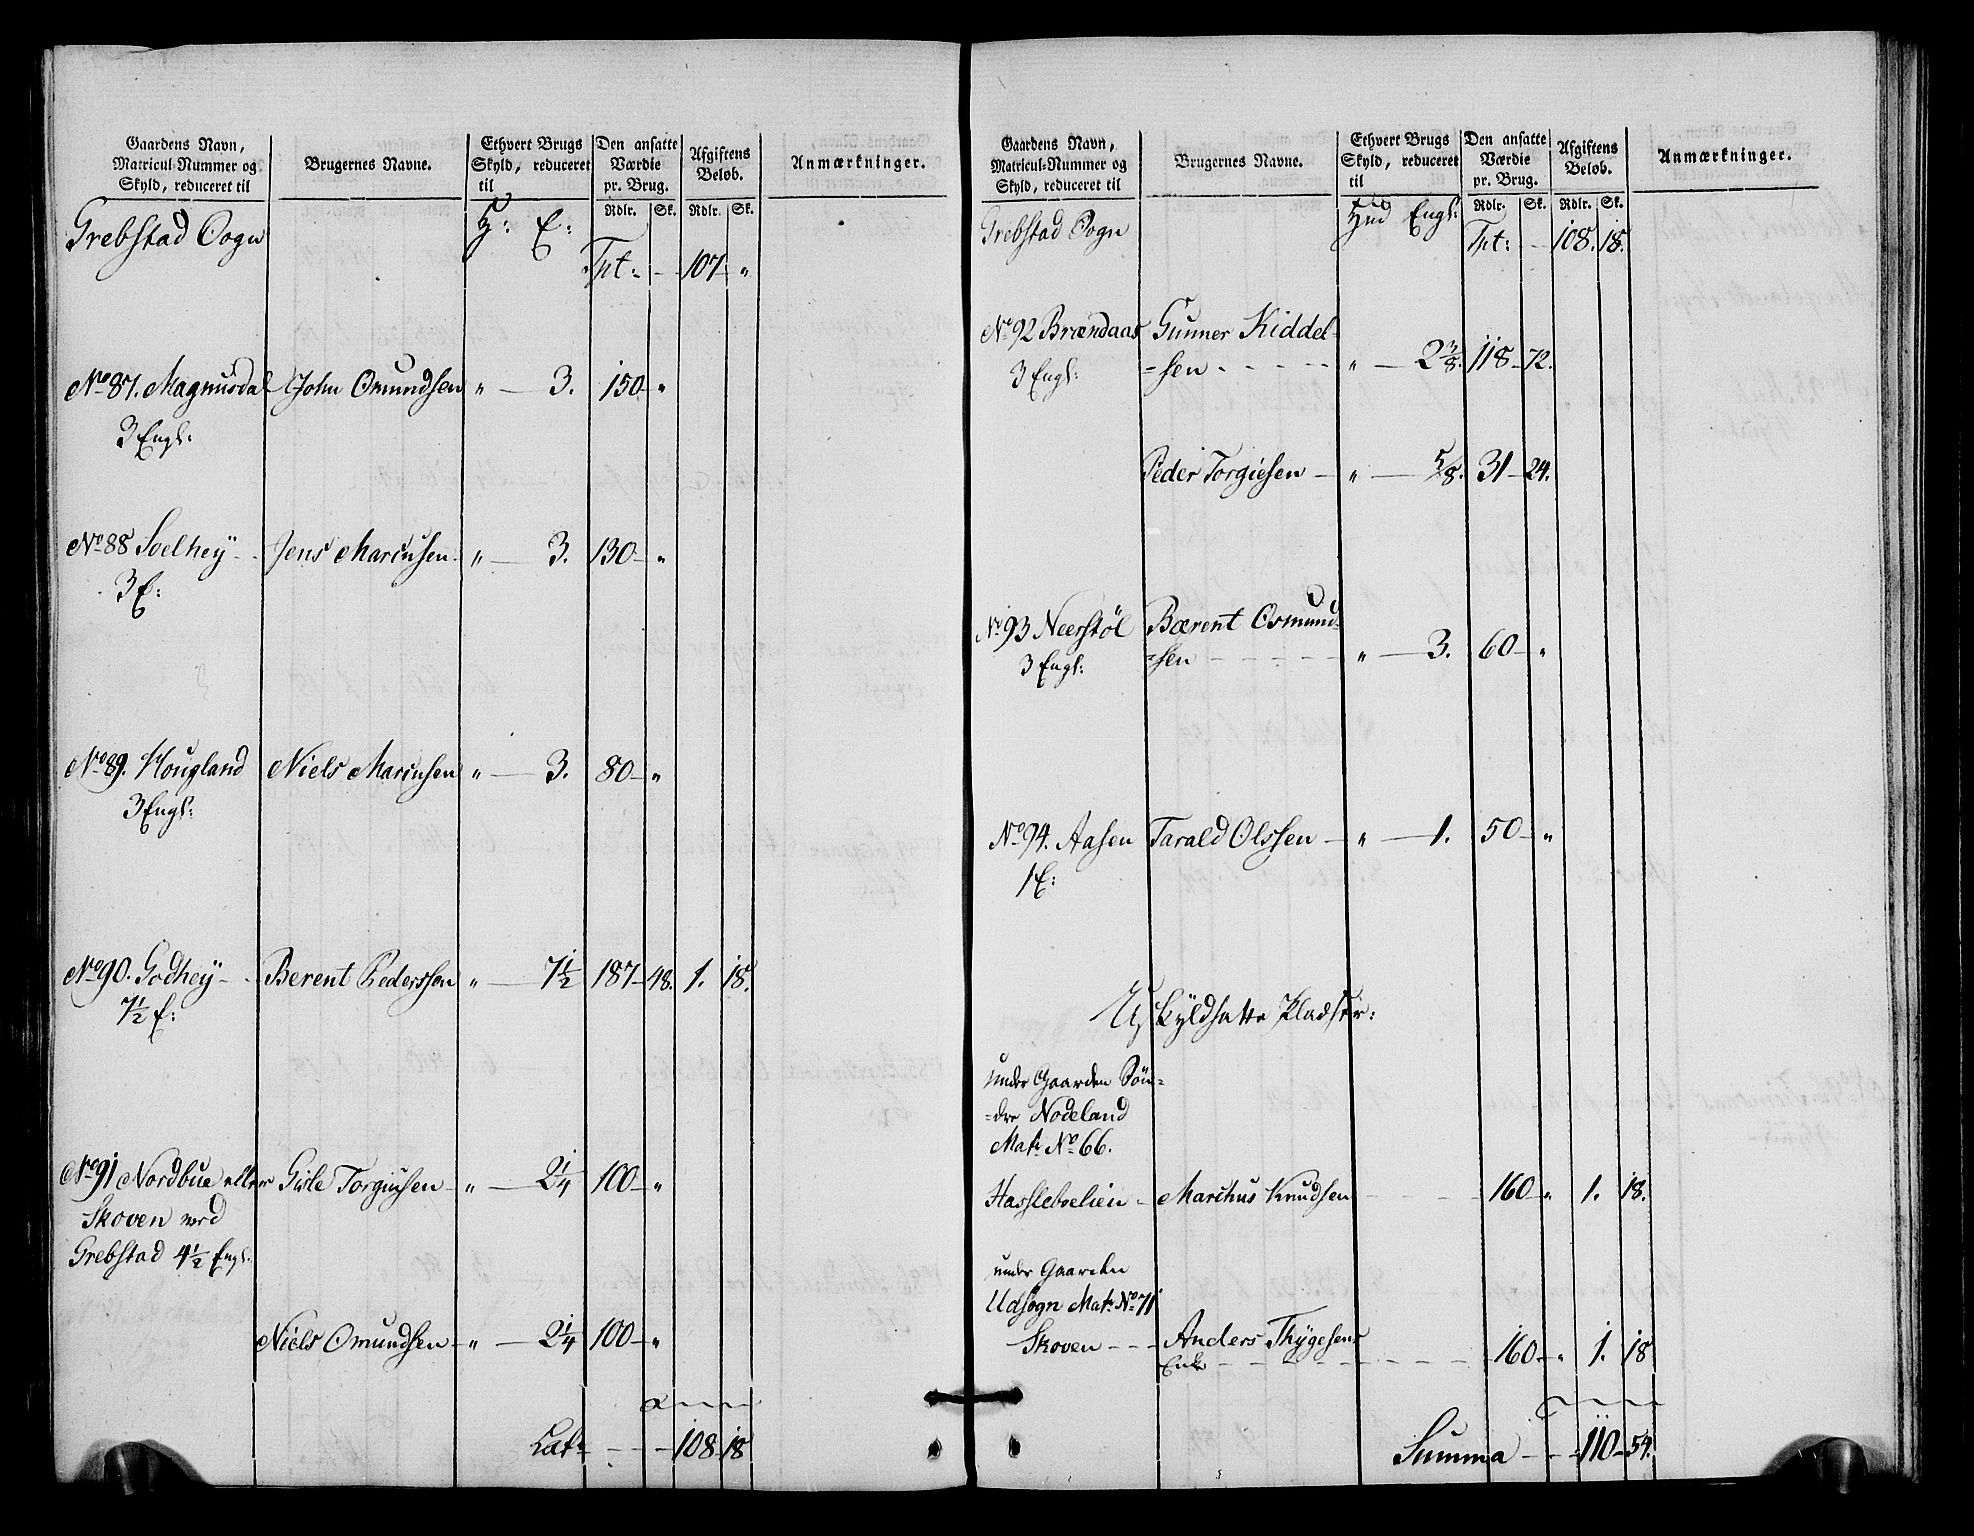 Gaardens Navn,
Matricul-Nummer og
Skyld, reduceret til
Brugernes Navne.
Ethvert Brugs
Skyld, reduceret
til
Den ansatte
Værdie
pr. Brug.
Afgiftens
Beløb.
Anmærkninger.
Rdlr. Sk. Rdlr. Sk.
Grebstad Sogn H: E:
Trt: - - 107 "
No 87. Magnusdal John Osmundsen " — 3. 150 "
3 Engl:
No 88 Soelhey - - Jens Marcusen " — 3. 130 "
3 E:
No 89. Hougland Niels Marcusen " — 3. 80 "
3 Engl:
No 90. Godhey - - Berent Pederssen " — 7½ 187 48. 1. 18.
7½ E:
No 91 Nordbue eller Gisle Torgiusen - " — 2¼ 100 "
Skoven ved
Grebstad 4½ Engl.
Niels Omundsen - " — 2¼ 100 "
Lat: - - - 108 18
Gaardens Navn,
Matricul-Nummer og
Skyld, reduceret til
Brugernes Navne.
Ethvert Brugs
Skyld, reduceret
til
Den ansatte
Værdie
pr. Brug.
Afgiftens
Beløb.
Anmærkninger.
Rdlr. Sk. Rdlr. Sk.
Grebstad Sogn Hud Engl:
Trt: - - 108. 18.
No 92 Brændaas Gunner Kiddel-
3 Engl: =sen - - - - - " — 2 3/8. 118 - 72.
Peder Torgiesen — " — 5/8. 31 - 24.
No 93 Neerstøl Bærent Osmund-
3 Engl: =sen - - - - - " — 3. 60 - "
No 94. Aasen Tarald Olssen — " — 1. 50 - "
1 E:
Uskyldsatte Pladser:
under Gaarden Søn=
=dre Nodeland
Mat: No 66.
Hasslebolien - Marchus Knudsen - - - - 160 " 1. 18.
under Gaarden
Udsogn Mat: No 71
Skoven - - - Anders Thygesens
Enke - - - - - - - - - 160 " 1. 18
Summa - - - 110 - 54.